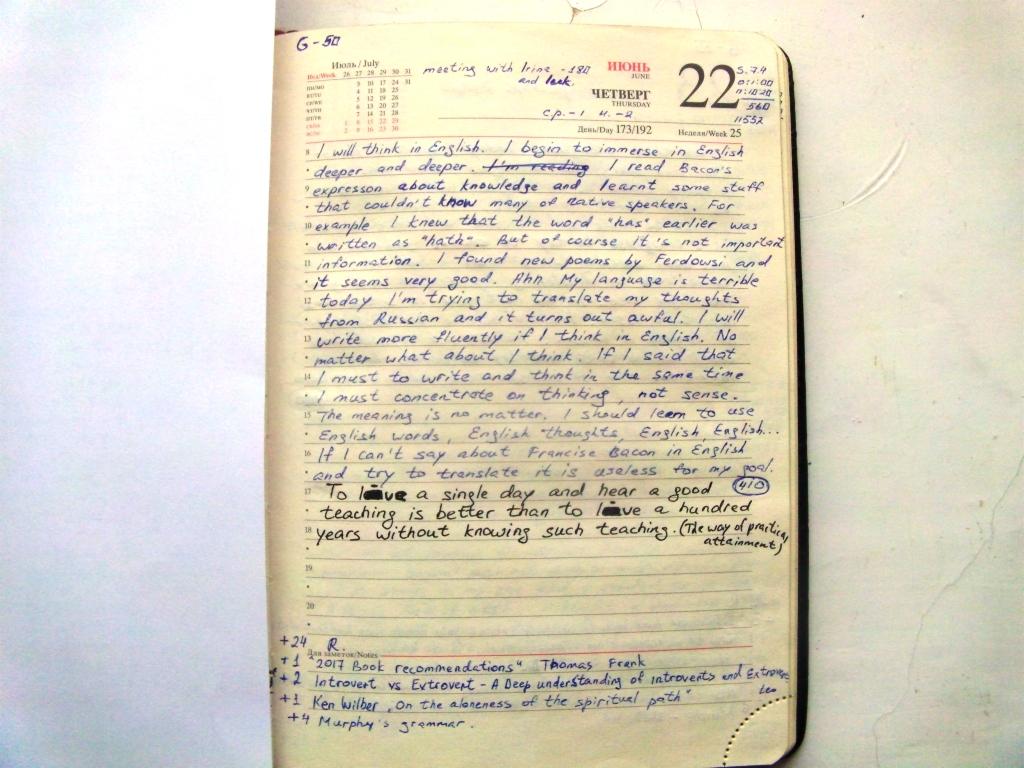 G-50
Июль / July
Нед/Week 26 27 28 29 30 31
пн/мо 3 10 17 24 31
вт/tu 4 11 18 25
ср/we 5 12 19 26
чт/th 6 13 20 27
пт/fr 7 14 21 28
сб/sa 1 8 15 22 29
вс/su 2 9 16 23 30
meeting with Irina - 180
and lack.
ИЮНЬ
JUNE
ЧЕТВЕРГ
THURSDAY
22
S. 7.4
560
11552
ср.-1 ч.-2
День/Day 173/192 Неделя/Week 25
8 I will think in English. I begin to immerse in English
deeper and deeper. I'm reading I read Bacon's
9 expresson about knowledge and learnt some stuff
that couldn't know many of native speakers. For
10 example I knew that the word "has" earlier was
written as "hath". But of course it's not important
11 information. I found new poems by Ferdowsi and
it seems very good. Ahh My language is terrible
12 today I'm trying to translate my thoughts
from Russian and it turns out awful. I will
13 write more fluently if I think in English. No
matter what about I think. If I said that
14 I must to write and think in the same time
I must concentrate on thinking, not sense.
15 The meaning is no matter. I should learn to use
English words, English thoughts, English, English...
16 If I can't say about Francise Bacon in English
and try to translate it is useless for my goal.
17 To live a single day and hear a good 410
teaching is better than to live a hundred
18 years without knowing such teaching. (The way of practical
attainment)
19
20
+24 R.
Для заметок/Notes
+1 "2017 Book recommendations" Thomas Frank
+2 Introvert vs Extrovert - A Deep understanding of introverts and Extroverts
+1 Ken Wilber „On the aloneness of the spiritual path"
+4 Murphy's grammar.